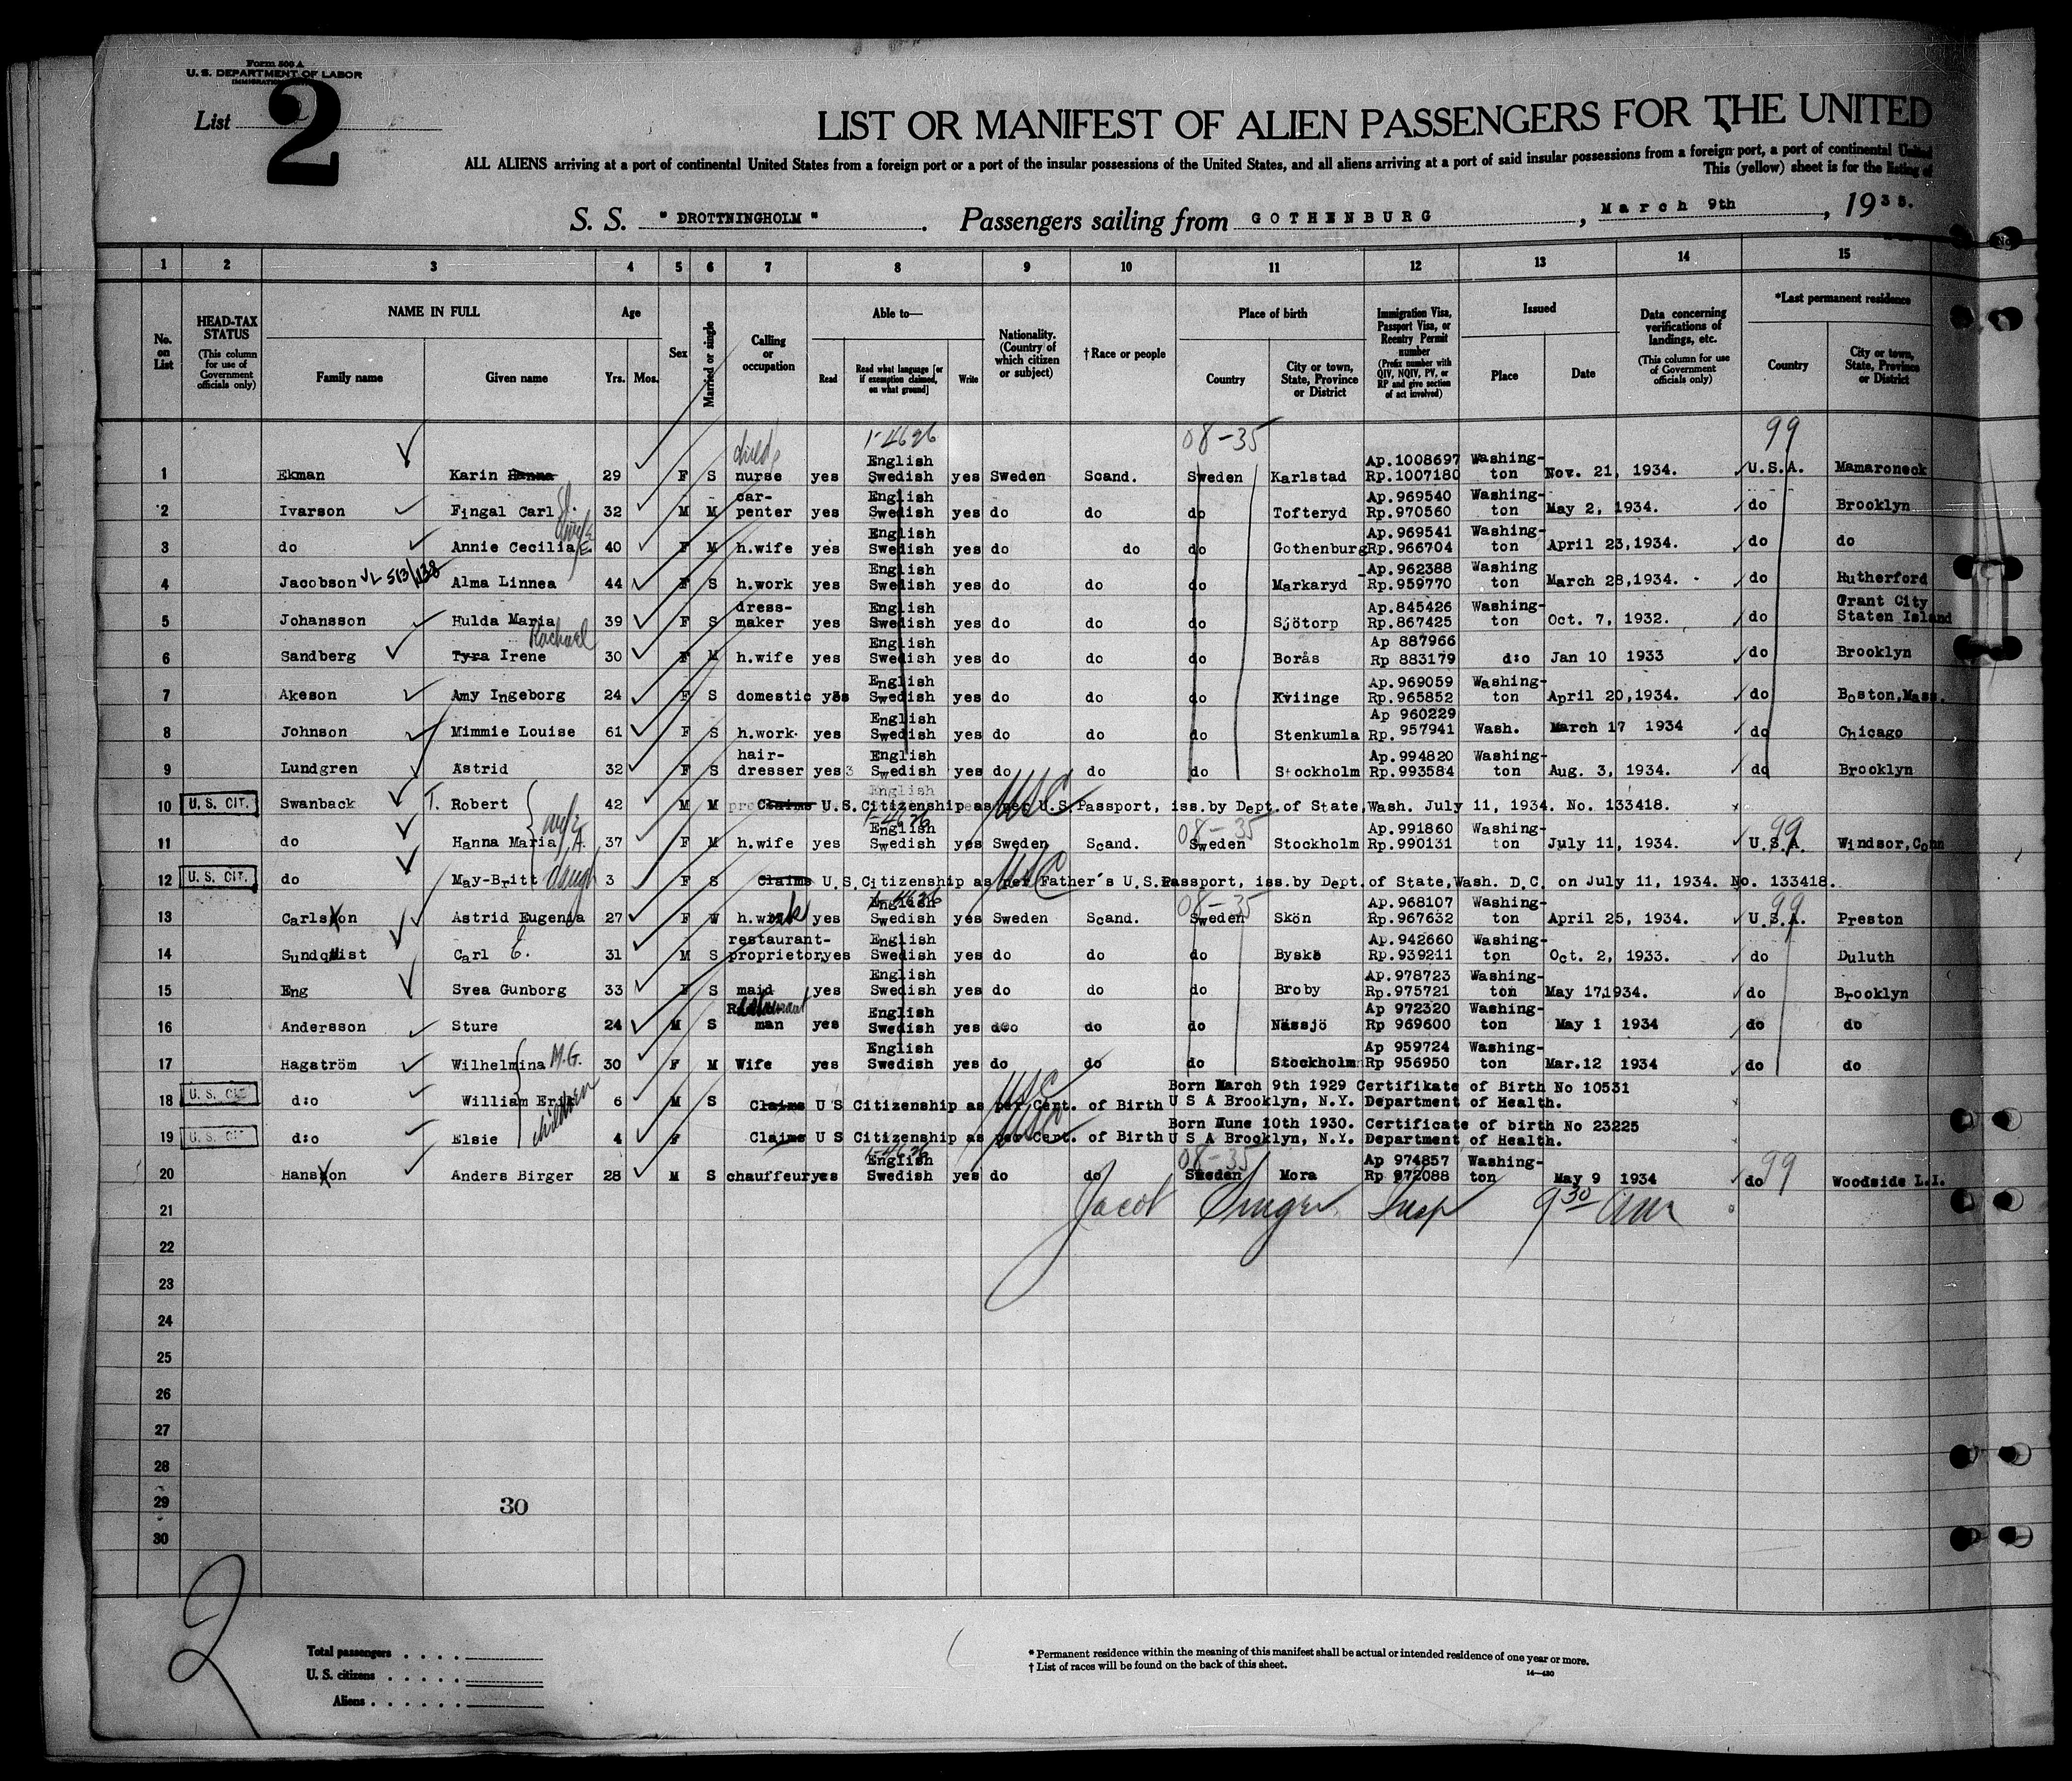 Form 500 A
U. S. DEPARTMENT OF LABOR
List 2
LIST OR MANIFEST OF ALIEN PASSENGERS FOR THE UNITED
ALL ALIENS arriving at a port of continental United States from a foreign port or a port of the insular possessions of the United States, and all aliens arriving at a port of said insular possessions from a foreign port, a port of continental United
This (yellow) sheet is for the listing of
S. S. " DROTTNINGHOLM " . Passengers sailing from GOTHENBURG , March 9th , 1935.
1 2 3 4 5 6 7 8 9 10 11 12 13 14 15
No. on List
HEAD-TAX STATUS (This column for use of Government officials only)
NAME IN FULL Family name Given name
Age Yrs. Mos.
Sex
Married or single
Calling or occupation
Able to— Read Read what language [or if exemption claimed, on what ground] Write
Nationality. (Country of which citizen or subject)
†Race or people
Place of birth Country City or town, State, Province or District
Immigration Visa, Passport Visa, or Reentry Permit number (Prefix number with QIV, NQIV, PV, or RP and give section of act involved)
Issued Place Date
Data concerning verifications of landings, etc. (This column for use of Government officials only)
*Last permanent residence Country City or town, State, Province or District
08-35 99
1 Ekman Karin Hanna 29 F S nurse yes English Swedish yes Sweden Scand. Sweden Karlstad Ap.1008697 Rp.1007180 Washington Nov. 21, 1934. U.S.A. Mamaroneck
2 Ivarson Fingal Carl 32 M M carpenter yes English Swedish yes do do do Tofteryd Ap.969540 Rp.970560 Washington May 2, 1934. do Brooklyn
3 do Annie Cecilia E. 40 F M h.wife yes English Swedish yes do do do Gothenburg Ap.969541 Rp.966704 Washington April 23,1934. do do
4 Jacobson VL 513/138 Alma Linnea 44 F S h.work yes English Swedish yes do do do Markaryd Ap.962388 Rp.959770 Washington March 28,1934. do Rutherford
5 Johansson Hulda Maria 39 F S dress-maker yes English Swedish yes do do do Sjötorp Ap.845426 Rp.867425 Washington Oct. 7, 1932. do Grant City Staten Island
6 Sandberg Tyra Irene Rachael 30 F M h.wife yes English Swedish yes do do do Borås Ap 887966 Rp 883179 d:o Jan 10 1933 do Brooklyn
7 Akeson Amy Ingeborg 24 F S domestic yes English Swedish yes do do do Kviinge Ap.969059 Rp.965852 Washington April 20,1934. do Boston,Mass.
8 Johnson Mimmie Louise 61 F S h.work. yes English Swedish yes do do do Stenkumla Ap 960229 Rp. 957941 Wash. March 17 1934 do Chicago
9 Lundgren Astrid 32 F S hair-dresser yes English Swedish yes do do do Stockholm Ap.994820 Rp.993584 Washington Aug. 3, 1934. do Brooklyn
10 U. S. CIT. Swanback T. Robert 42 M M Claims U.S.Citizenship as per U.S.Passport, iss.by Dept.of State,Wash. July 11, 1934. No. 133418. USC
11 do Hanna Maria A. wife 37 F M h.wife yes English Swedish yes Sweden Scand. 08-35 Sweden Stockholm Ap.991860 Rp.990131 Washington July 11, 1934. 99 U.S.A. Windsor,Conn
12 U. S. CIT. do May-Britt daugh 3 F S Claims U.S.Citizenship as per Father's U.S.Passport, iss.by Dept.of State,Wash. D.C. on July 11, 1934. No. 133418. USC
13 Carlsson Astrid Eugenia 27 F W h.work yes English Swedish yes Sweden Scand. 08-35 Sweden Skön Ap.968107 Rp.967632 Washington April 25, 1934. 99 U.S.A. Preston
14 Sundqwist Carl E. 31 M S restaurant-proprietor yes English Swedish yes do do do Byske Ap.942660 Rp.939211 Washington Oct. 2, 1933. do Duluth
15 Eng Svea Gunborg 33 F S maid yes English Swedish yes do do do Broby Ap.978723 Rp.975721 Washington May 17,1934. do Brooklyn
16 Andersson Sture 24 M S Restaurant man yes English Swedish yes do do do Nässjö Ap 972320 Rp 969600 Washington May 1 1934 do do
17 Hagström Wilhelmina M.G. 30 F M Wife yes English Swedish yes do do do Stockholm Ap 959724 Rp 956950 Washington Mar.12 1934 do do
18 U. S. CIT. d:o William Erik children 6 M S Claims U S Citizenship as per Cert. of Birth Born March 9th 1929 Certifikate of Birth No 10531 U S A Brooklyn, N.Y. Department of Health. USC
19 U. S. CIT. d:o Elsie 4 F Claims U S Citizenship as per Cert. of Birth Born Nune 10th 1930. Certificate of birth No 23225 U S A Brooklyn, N.Y. Department of Health. USC
20 Hansson Anders Birger 28 M S chauffeur yes English Swedish yes do do 08-35 Sweden Mora Ap 974857 Rp 972088 Washington May 9 1934 do 99 Woodside L.I.
21 Jacob Insp 9 30 am
22
23
24
25
26
27
28
29 30
30
2
Total passengers
U. S. citizens
Aliens
* Permanent residence within the meaning of this manifest shall be actual or intended residence of one year or more.
† List of races will be found on the back of this sheet.
14—430